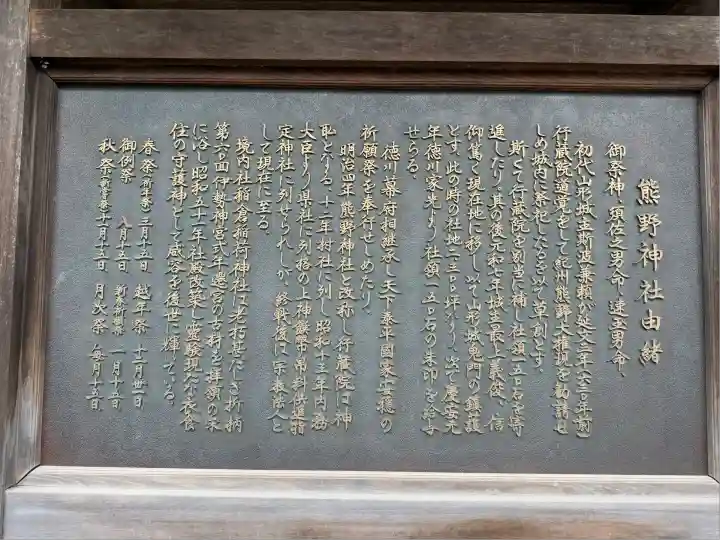 熊野神社由緒
御祭神、須佐之男命、速玉男命、
初代山形城主斯波兼頼が延文二年(六三〇年前)
行蔵院道寛をして紀州熊野大権現を勧請せ
しめ城内に祭祀したるを以て草創とす。
斯くて行蔵院を別当に補し社領五〇石を寄
進したり。其の後元和七年城主最上義俊、信
仰篤く現在地に移し、以て山形城鬼門の鎮護
とす。此の時の社地一三〇坪、より、以て慶安元
年徳川家光より社領一五〇石の朱印を給与
せらる。
徳川幕府相継承し天下泰平国家安穏の
祈願祭を奉行せしめたり。
明治四年熊野神社と改称し行蔵院は神
職となる。十二年村社に列し昭和十三年内務
大臣より県社に列格の上神饌幣帛料供進指
定神社に列せられしが、終戦後は宗教法人と
して現在に至る。
境内社稲倉稲荷神社は老朽甚だしき折柄
第六〇回伊勢神宮式年遷宮の古材を拝領の栄
に浴し昭和五十一年社殿改築し霊験現たな衣食
住の守護神として威容を後世に輝ている。
春祭(祈年祭)三月十五日 越年祭 十二月卅一日
御例祭 八月十五日 新年祈願祭 一月十五日、
秋祭(新嘗祭)十一月十五日 月次祭 毎月十五日、